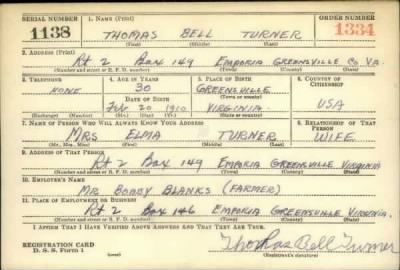 SERIAL NUMBER 1. NAME (Print) ORDER NUMBER
1138 THOMAS BELL TURNER 1334
(First) (Middle) (Last)
2. ADDRESS (Print)
Rt 2 Box 149 EMPORIA GREENSVILLE Co VA.
(Number and street or R. F. D. number) (Town) (County) (State)
3. TELEPHONE 4. AGE IN YEARS 5. PLACE OF BIRTH 6. COUNTRY OF CITIZENSHIP
NONE 30 GREENSVILLE
DATE OF BIRTH (Town or county)
Feb 20 1910 VIRGINIA. USA
(Exchange) (Number) (Mo.) (Day) (Yr.) (State or country)
7. NAME OF PERSON WHO WILL ALWAYS KNOW YOUR ADDRESS 8. RELATIONSHIP OF THAT PERSON
MRS ELMA TURNER WIFE
(Mr., Mrs., Miss) (First) (Middle) (Last)
9. ADDRESS OF THAT PERSON
Rt 2 Box 149 EMPORIA GREENSVILLE VIRGINIA
(Number and street or R. F. D. number) (Town) (County) (State)
10. EMPLOYER'S NAME
MR BOBBY BLANKS (FARMER)
11. PLACE OF EMPLOYMENT OR BUSINESS
Rt 2 Box 146 EMPORIA GREENSVILLE VIRGINIA.
(Number and street or R. F. D. number) (Town) (County) (State)
I AFFIRM THAT I HAVE VERIFIED ABOVE ANSWERS AND THAT THEY ARE TRUE.
REGISTRATION CARD
D. S. S. Form 1 (over) Thomas Bell Turner
(Registrant's signature)